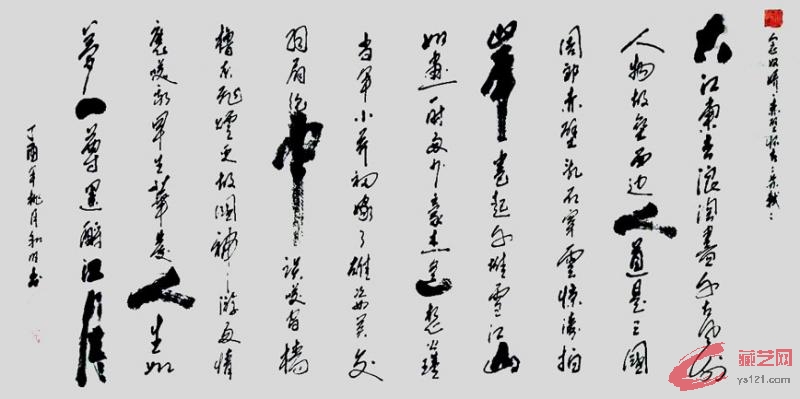 念奴娇：赤壁怀古：苏轼：
大江東去浪淘盡千古風流
人物故壘西边人道是三國
周郎赤壁乱石穿雲惊涛拍
岸卷起千堆雪江山
如畫一时多少豪杰遥想公瑾
当年小乔初嫁了雄姿英发
羽扇纶巾谈笑间樯
橹灰飛煙灭故國神游多情
應笑我早生華发人生如
夢一尊還酹江月
丁酉年桃月和明书
藏艺网
ys121.com